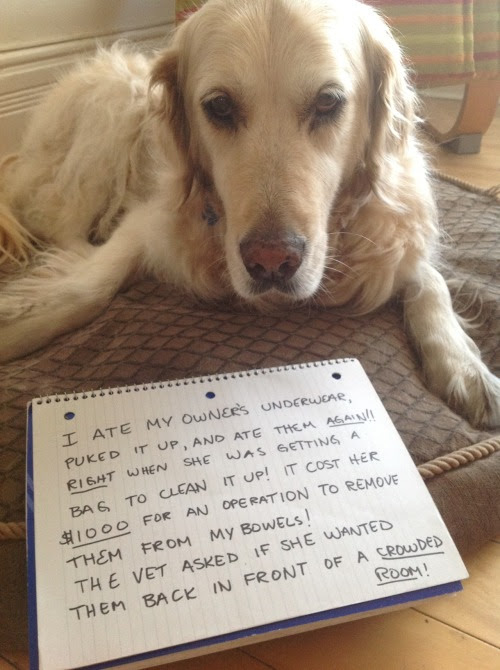 I ATE MY OWNER'S UNDERWEAR,
PUKED IT UP, AND ATE THEM AGAIN!!
RIGHT WHEN SHE WAS GETTING A
BAG TO CLEAN IT UP! IT COST HER
$1000 FOR AN OPERATION TO REMOVE
THEM FROM MY BOWELS!
THE VET ASKED IF SHE WANTED
THEM BACK IN FRONT OF A CROWDED
ROOM!